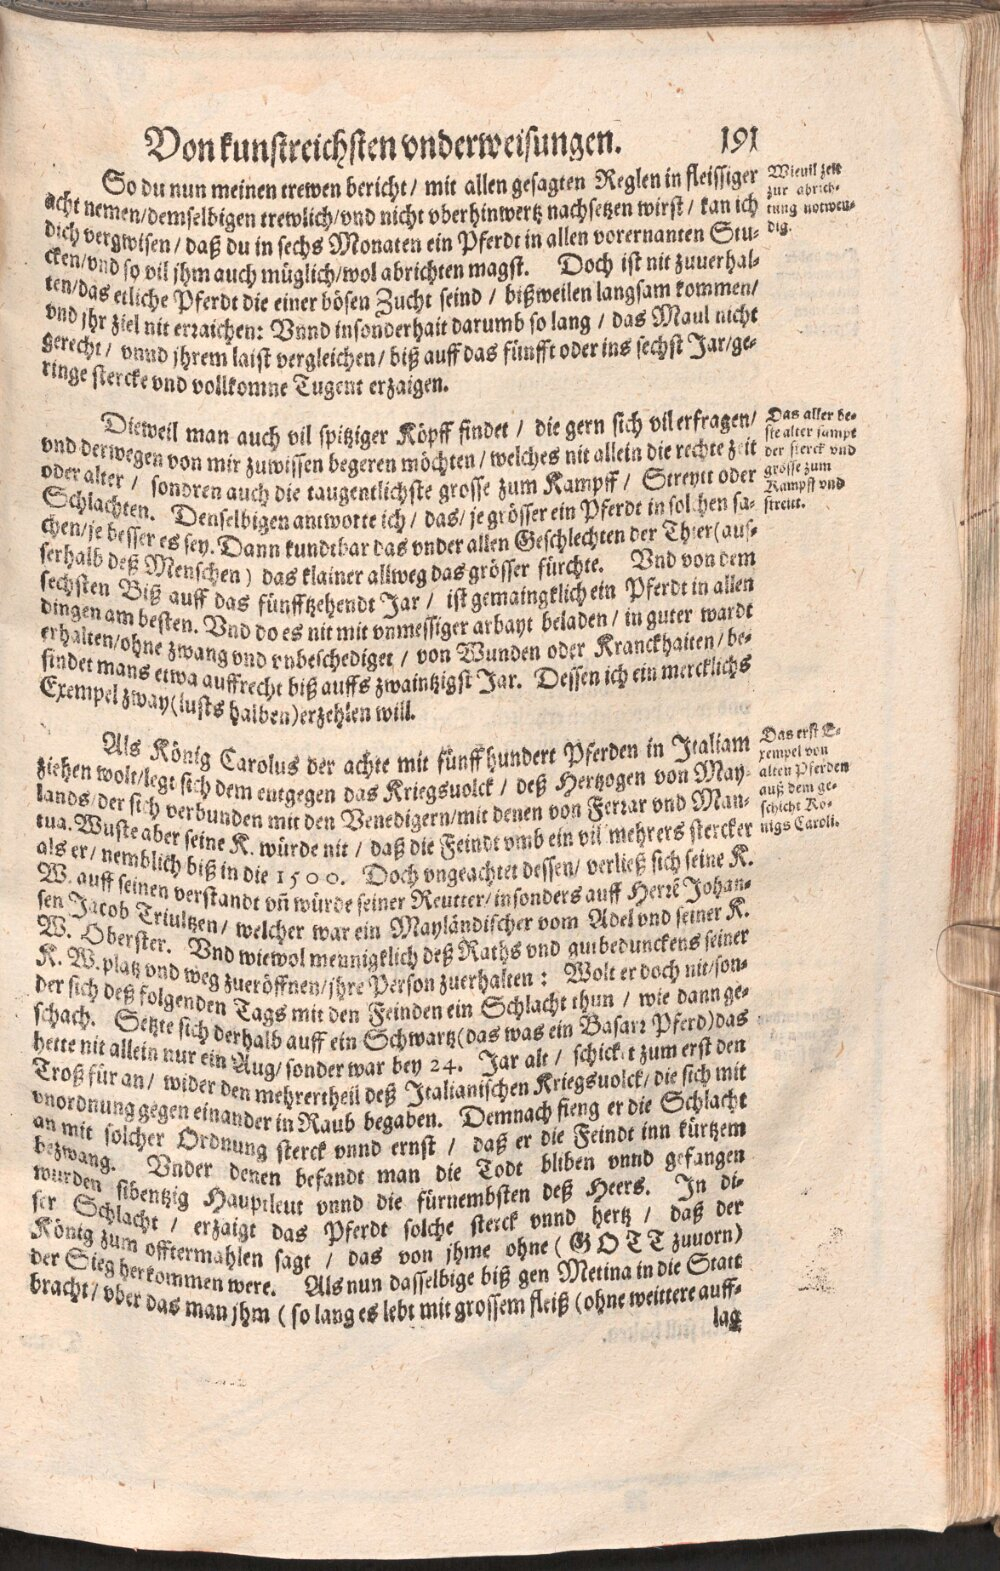 Von kunstreichsten vnderweisungen. 191
So du nun meinen trewen bericht / mit allen gesagten Reglen in fleissiger
acht nemen/demselbigen trewlich/vnd nicht vberhinwertz nachsetzen wirst / kan ich
dich vergwisen / daß du in sechs Monaten ein Pferdt in allen vorernanten Stu-
cken/vnd so vil jhm auch müglich/wol abrichten magst. Doch ist nit zuuerhal-
ten/das etliche Pferdt die einer bösen Zucht seind / bißweilen langsam kommen/
vnd jhr ziel nit erraichen: Vnnd insonderhait darumb so lang / das Maul nicht
gerecht / vnnd jhrem laist vergleichen / biß auff das fünfft oder ins sechst Jar/ge-
ringe stercke vnd vollkomne Tugent erzaigen.
Wieuil zeit
zur abrich-
tung notwen-
dig.
Dieweil man auch vil spitziger Köpff findet / die gern sich vil erfragen/
vnd derwegen von mir zuwissen begeren möchten / welches nit allein die rechte zeit
oder alter / sondren auch die taugentlichste grosse zum Kampff / Streytt oder
Schlachten. Denselbigen antworte ich / das/ je grösser ein Pferdt in solchen sa-
chen/je besser es sey. Dann kundtbar das vnder allen Geschlechten der Thier(aus-
serhalb deß Menschen) das klainer allweg das grösser fürchte. Vnd von dem
sechsten Biß auff das fünfftzehendt Jar / ist gemaingklich ein Pferdt in allen
dingen am besten. Vnd do es nit mit vnmessiger arbayt beladen / in guter wardt
erhalten/ohne zwang vnd vnbeschediget / von Wunden oder Kranckhaiten / be-
findet mans etwa auffrecht biß auffs zwaintzigst Jar. Dessen ich ein mercklichs
Exempel zway(lusts halben)erzehlen will.
Das aller be-
ste alter sampt
der sterck vnd
grösse zum
Kampff vnd
streitt.
Als König Carolus der achte mit fünff hundert Pferden in Italiam
ziehen wolt/legt sich dem entgegen das Kriegsuolck / deß Hertzogen von May-
lands/der sich verbunden mit den Venedigern/mit denen von Ferrar vnd Man-
tua. Wuste aber seine K. würde nit / daß die Feindt vmb ein vil mehrers stercker
als er / nemblich biß in die 1500. Doch vngeachtet dessen/ verließ sich seine K.
W. auff seinen verstandt vñ würde seiner Reutter/insonders auff Herrẽ Johan-
sen Jacob Triultzen/ welcher war ein Mayländischer vom Adel vnd seiner K.
W. Oberster. Vnd wiewol mennigklich deß Raths vnd gutbedunckens seiner
K. W. platz vnd weg zueröffnen/jhre Person zuerhalten : Wolt er doch nit/son-
der sich deß folgenden Tags mit den Feinden ein Schlacht thun / wie dann ge-
schach. Setzte sich derhalb auff ein Schwartz(das was ein Basarr Pferd)das
hette nit allein nur ein Aug/ sonder war bey 24. Jar alt / schicket zum erst den
Troß für an/ wider den mehrertheil deß Italianischen Kriegsuolck/ die sich mit
vnordnung gegen einander in Raub begaben. Demnach fieng er die Schlacht
an mit solcher Ordnung sterck vnnd ernst / daß er die Feindt inn kürtzem
bezwang. Vnder denen befandt man die Todt bliben vnnd gefangen
wurden sibentzig Hauptleut vnnd die fürnembsten deß Heers. In di-
ser Schlacht / erzaigt das Pferdt solche sterck vnnd hertz / daß der
König zum offtermahlen sagt / das von jhme ohne ( GOTT zuuorn)
der Sieg herkommen were. Als nun dasselbige biß gen Metina in die Statt
bracht/ vber das man jhm ( so lang es lebt mit grossem fleiß (ohne weittere auff-
lag
Das erst E-
xempel von
alten Pferden
auß dem ge-
schicht Kö-
nigs Caroli.